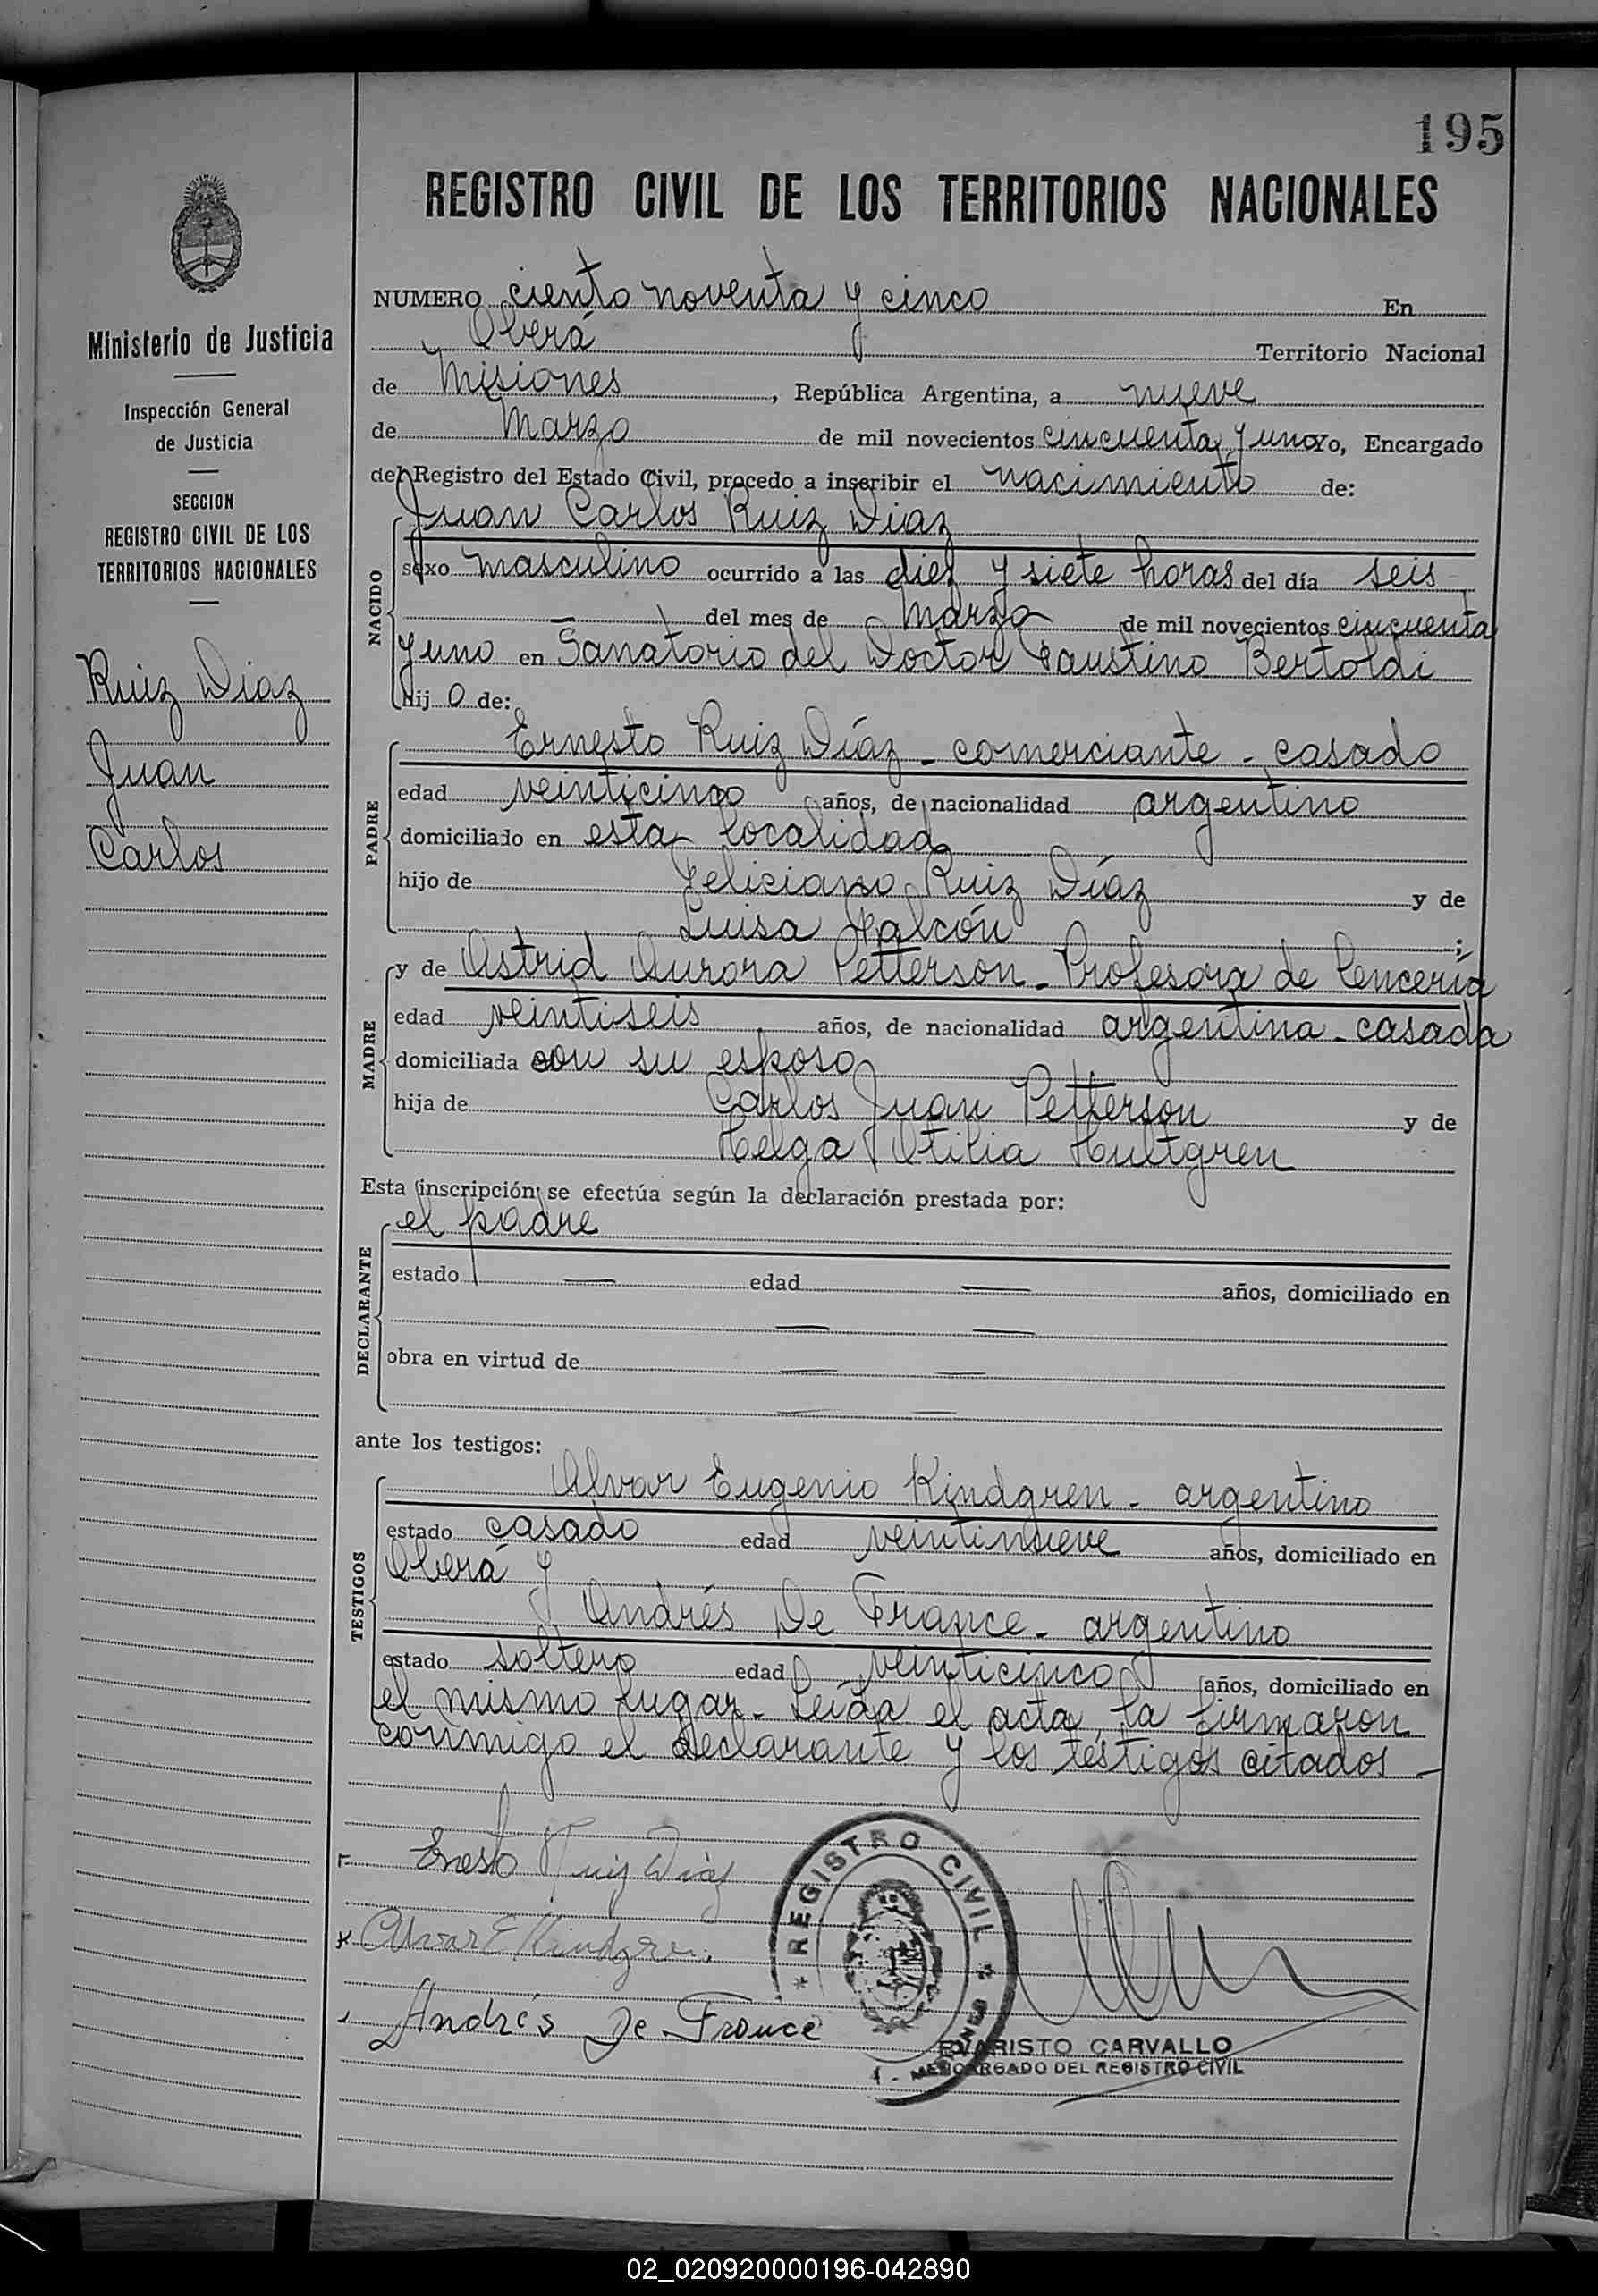 195
REGISTRO CIVIL DE LOS TERRITORIOS NACIONALES
Ministerio de Justicia
Inspección General
de Justicia
SECCION
REGISTRO CIVIL DE LOS
TERRITORIOS NACIONALES
Ruiz Diaz
Juan
Carlos
NUMERO ciento noventa y cinco En
Oberá Territorio Nacional
de Misiones, República Argentina, a nueve
de Marzo de mil novecientos cincuenta y uno Yo, Encargado
del Registro del Estado Civil, procedo a inscribir el nacimiento de:
NACIDO
Juan Carlos Ruiz Diaz
sexo masculino ocurrido a las diez y siete horas del día seis
— del mes de Marzo de mil novecientos cincuenta
y uno en Sanatorio del Doctor Faustino Bertoldi
hij o de:
PADRE
Ernesto Ruiz Díaz - comerciante - casado
edad veinticinco años, de nacionalidad argentino
domiciliado en esta localidad
hijo de Feliciano Ruiz Díaz y de
Luisa Falcón ;
MADRE
y de Astrid Aurora Petterson - Profesora de Lencería
edad veintiseis años, de nacionalidad argentina - casada
domiciliada con su esposo
hija de Carlos Juan Petterson y de
Helga Otilia Hultgren
Esta inscripción se efectúa según la declaración prestada por:
DECLARANTE
el padre
estado — edad — años, domiciliado en
— —
obra en virtud de — —
— —
ante los testigos:
TESTIGOS
Alvar Eugenio Kindgren - argentino
estado casado edad veintinueve años, domiciliado en
Oberá y
Andrés De France - argentino
estado soltero edad veinticinco años, domiciliado en
el mismo lugar - Leída el acta, la firmaron
conmigo el declarante y los testigos citados —
Ernesto Ruiz Diaz
Alvar E Kindgren
Andrés De France
* REGISTRO CIVIL *
EVARISTO CARVALLO
ENCARGADO DEL REGISTRO CIVIL
02_020920000196-042890